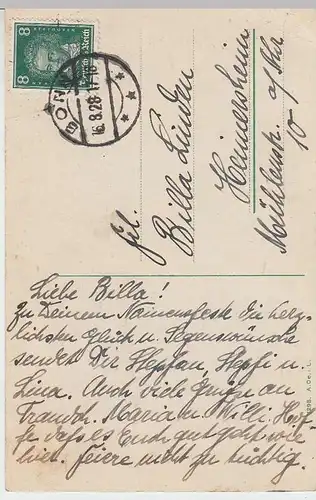 8 BEETHOVEN 8
Deutsches Reich
BONN
16.8.28.17-18
Frl.
Billa Linden
Heimersheim
Mühlenstr. a/Ahr
10
Liebe Billa!
Zu Deinem Namensfeste die herz-
lichsten Glück u. Segenswünsche
sendet Dir Stepfan, Steffi u.
Lina. Auch viele Grüße an
Traudch. Maria u. Willi. Hof-
fe daß es Euch gut geht wie
hier. feiere nicht zu tüchtig.